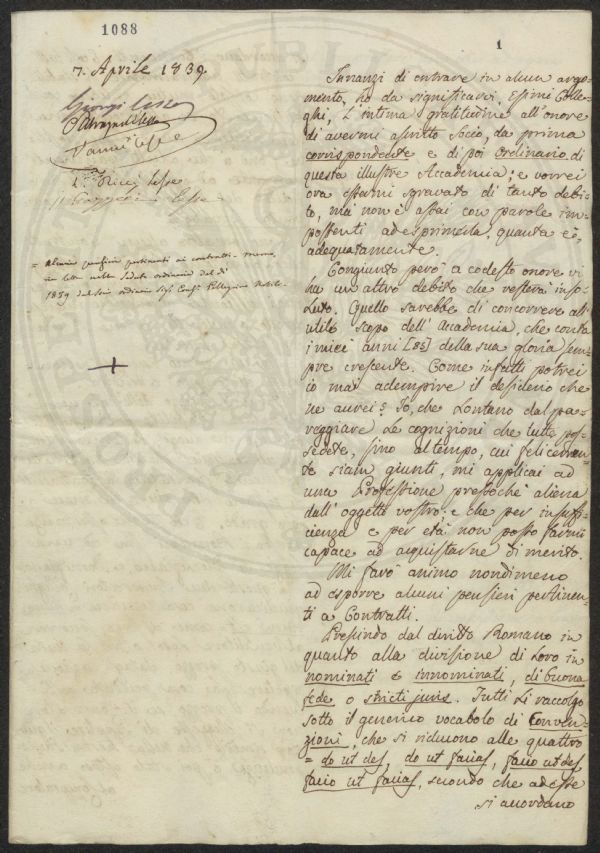 1088
1
7. Aprile 1839
Giorgi lesse
lesse
lesse
Ricci lesse
lesse
= Alcuni pensieri pertinenti ai contratti - Memoria
letta nella Seduta ordinaria del dì
1839 dal Socio ordinario Sigr Pellegrino Nobili -
Innanzi di entrare in alcun argo-
mento, ho da significarvi, Esimi Colle-
ghi, l'intima gratitudine all'onore
di avermi assunto Socio, da prima
corrispondente e di poi Ordinario di
questa illustre Accademia; e vorrei
ora essermi sgravato di tanto debi-
to, ma non è assai con parole im-
possenti ad esprimerla quanta è,
adequatamente.
Congiunto però a codesto onore vi
ha un altro debito che resterà inso-
luto. Quello sarebbe di concorrere all'
utile scopo dell'Accademia, che conta
i miei anni [85] della sua gloria sem-
pre crescente. Come infatti potrei
io mai adempire il desiderio che
ne avrei? Io, che lontano dal pa-
reggiare le cognizioni che tutti pos-
sedete, sino al tempo, cui felicemen-
te siam giunti, mi applicai ad
una Professione pressochè aliena
dall'oggetto vostro: e che per insuffi-
cienza e per età non posso farmi
capace ad acquistarne di merito.
Mi farò animo nondimeno
ad esporre alcuni pensieri pertinen-
ti a Contratti.
Prescindo dal diritto Romano in
quanto alla divisione di Loro in
nominati & innominati, di buona
fede o stricti juris. Tutti li raccolgo
sotto il generico vocabolo di Conven-
zioni, che si riducono alle quattro
= do ut des, do ut facias, facio ut des
facio ut facias, secondo che ad esse
si accordano